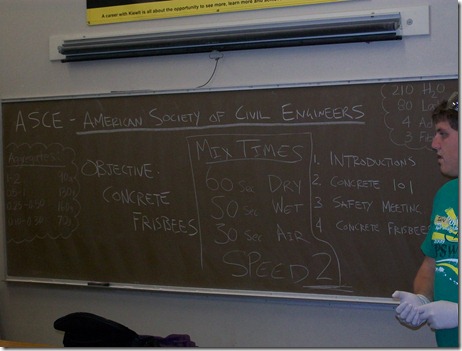 A career with Kiewit is all about the opportunity to see more, learn more and
ASCE - AMERICAN SOCIETY OF CIVIL ENGINEERS
210 H2O
80
4
3
Aggregates
OBJECTIVE-
CONCRETE
FRISBEES
MIX TIMES
60 SEC DRY
50 SEC WET
30 SEC AIR
SPEED 2
1. INTRODUCTIONS
2 CONCRETE 101
3 SAFETY MEETING
4 CONCRETE FRISBEES